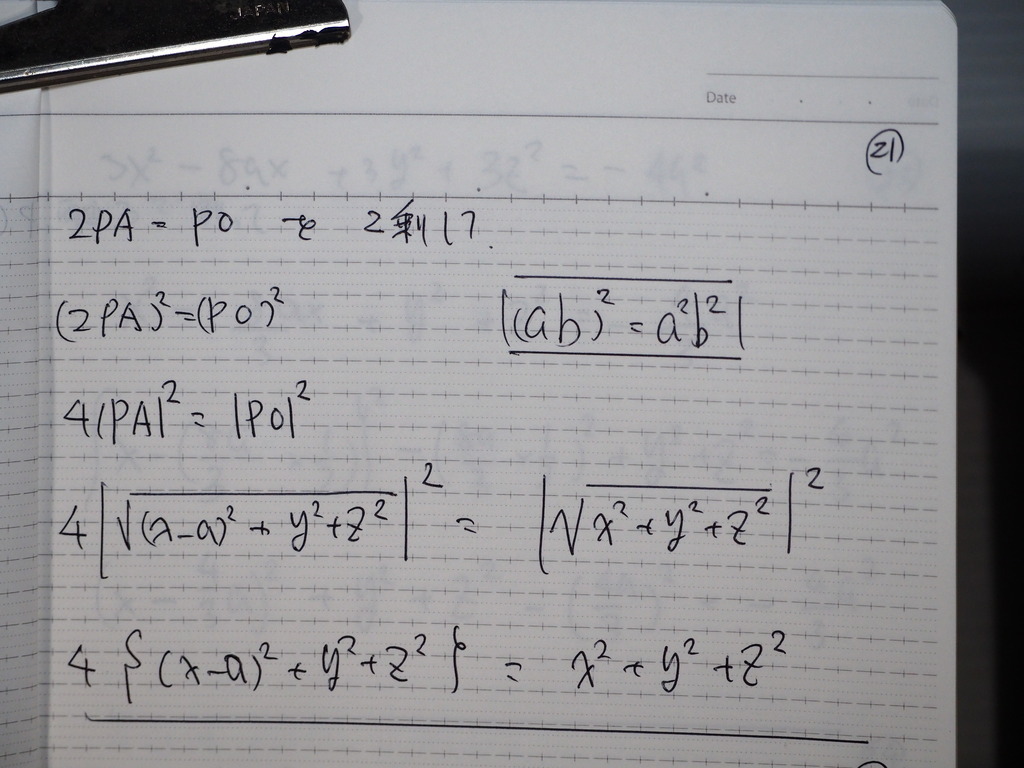 JAPAN
Date
(21)
3x² - 8ax + 3y² + 3z² = -4a²
2PA = PO を 2乗して.
(2PA)² = (PO)²
(ab)² = a²b²
4|PA|² = |PO|²
4|√(x-a)² + y² + z²|² = |√x² + y² + z²|²
4{(x-a)² + y² + z²} = x² + y² + z²